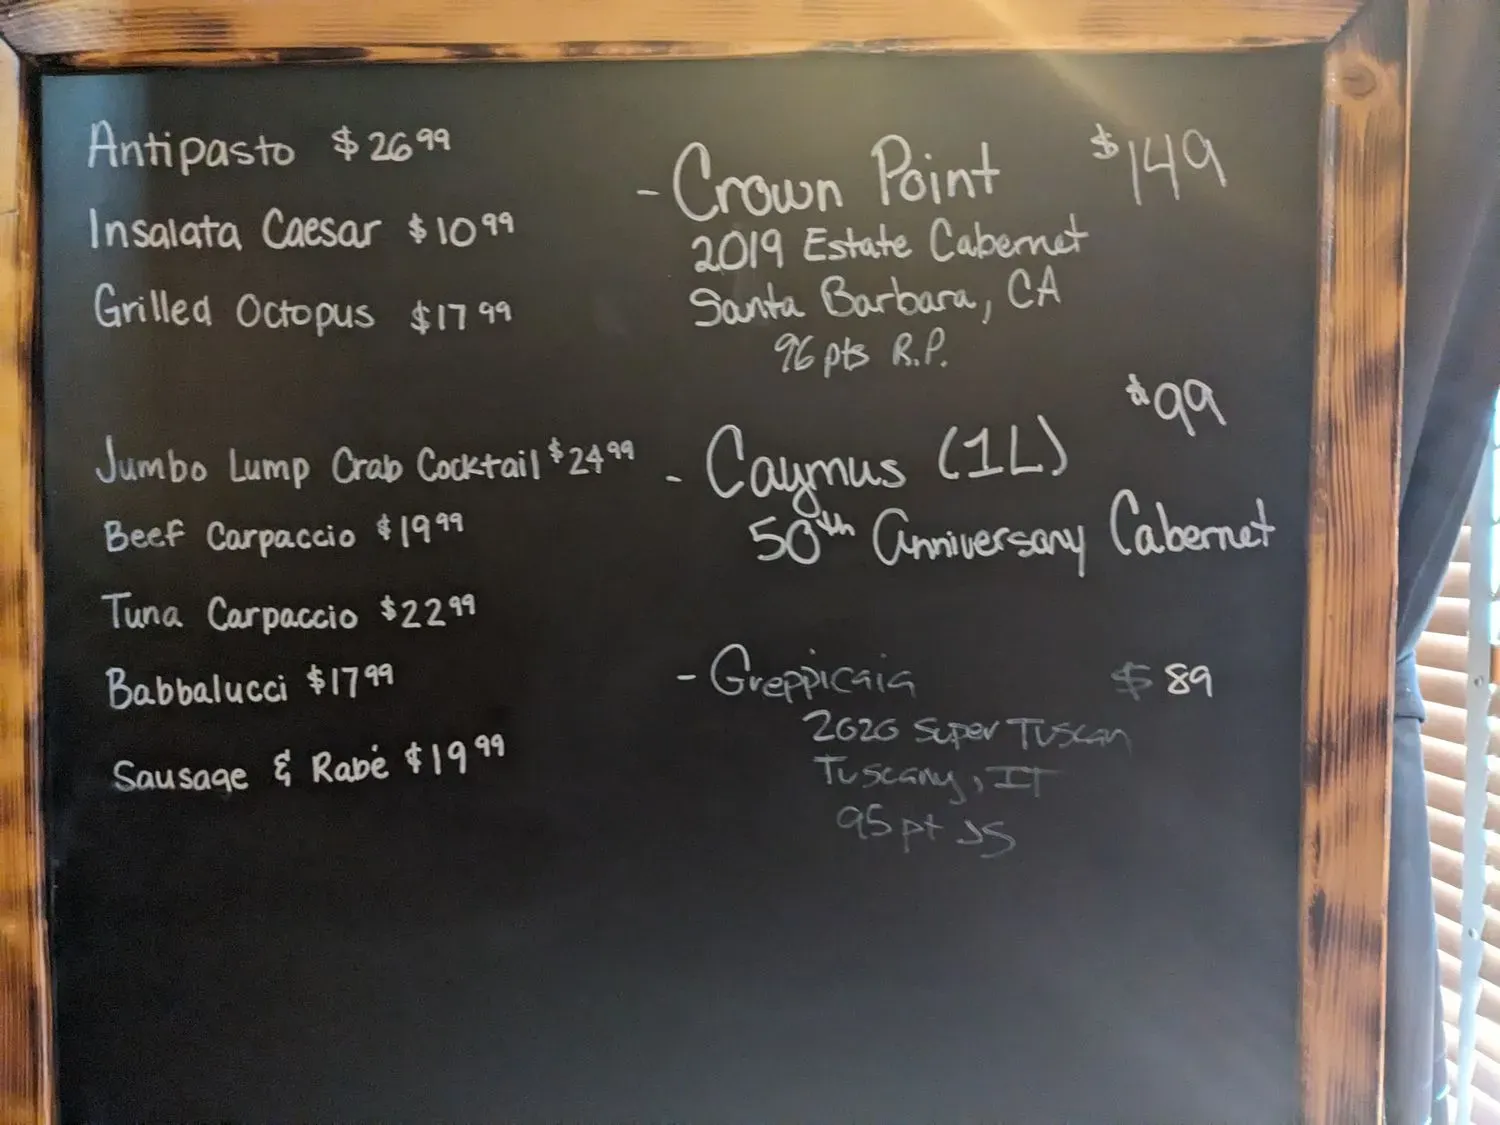 Antipasto $26.99
Insalata Caesar $10.99
Grilled Octopus $17.99
Jumbo Lump Crab Cocktail $24.99
Beef Carpaccio $19.99
Tuna Carpaccio $22.99
Babbalucci $17.99
Sausage & Rabé $19.99
- Crown Point $149
2019 Estate Cabernet
Santa Barbara, CA
96 pts R.P.
- Caymus (1L) $99
50th Anniversary Cabernet
- Greppicaia $89
2020 Super Tuscan
Tuscany, IT
95 pt JS